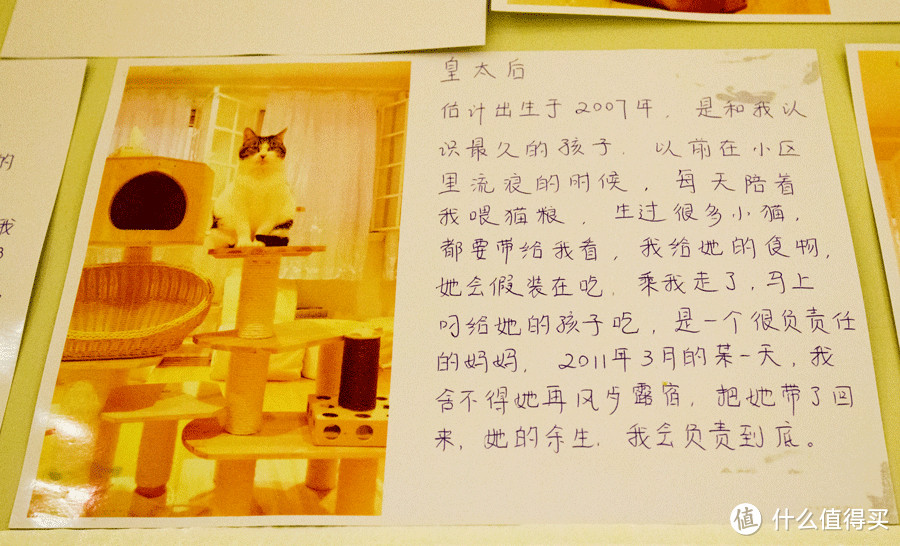 皇太后
估计出生于2007年，是和我认
识最久的孩子．以前在小区
里流浪的时候，每天陪着
我喂猫粮，生过很多小猫，
都要带给我看，我给她的食物，
她会假装在吃．乘我走了，马上
叼给她的孩子吃，是一个很负责任
的妈妈．2011年3月的某一天，我
舍不得她再风步露宿，把她带了回
来，她的余生．我会负责到底。
的
我
3
值 什么值得买